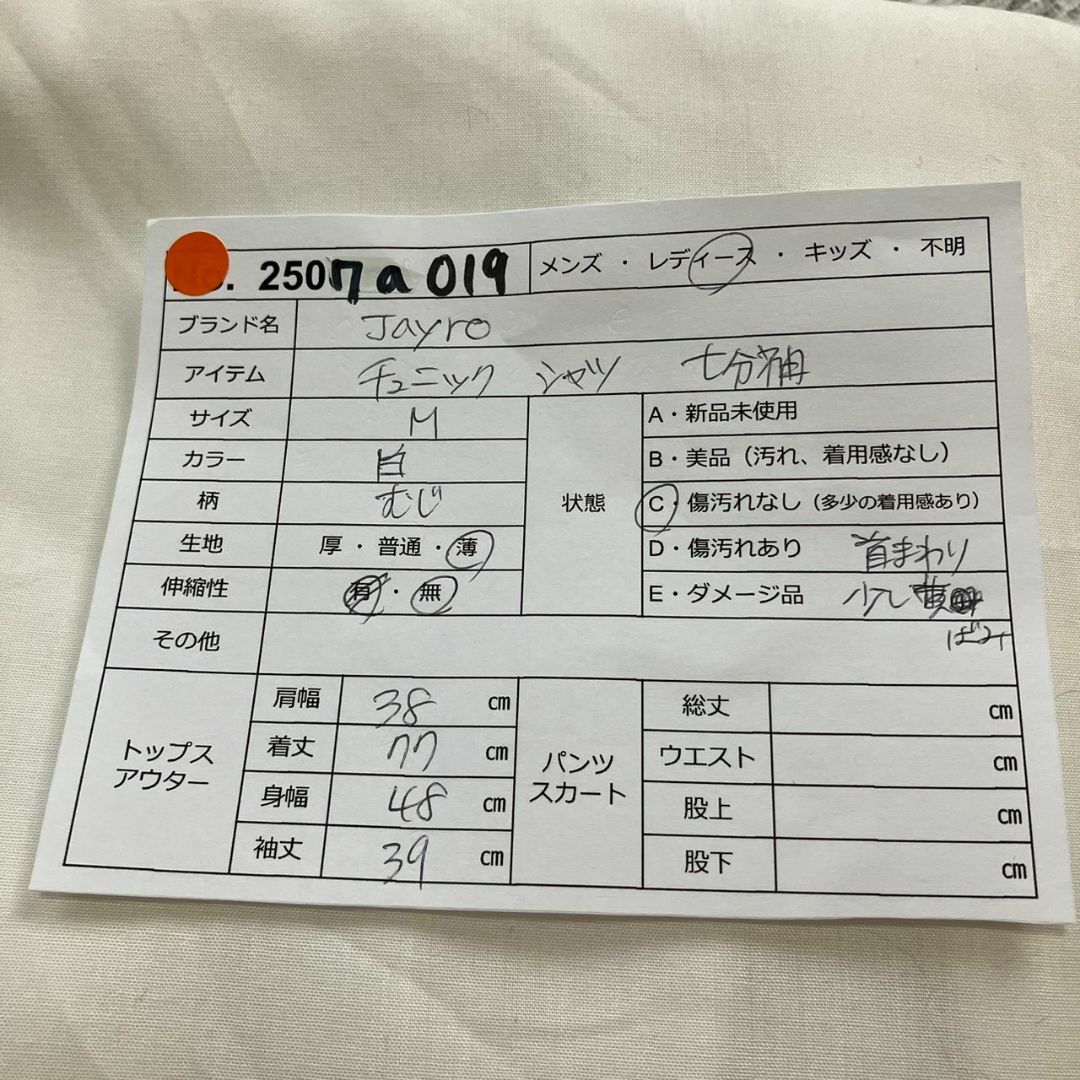 No. 2507a019 メンズ ・ レディース ・ キッズ ・ 不明
ブランド名 Jayro
アイテム チュニック シャツ 七分袖
サイズ M
カラー 白
柄 むじ
生地 厚 ・ 普通 ・ 薄
伸縮性 有 ・ 無
状態
A・新品未使用
B・美品（汚れ、着用感なし）
C・傷汚れなし（多少の着用感あり）
D・傷汚れあり 首まわり
E・ダメージ品 少し黄
ばみ
その他
トップス
アウター
肩幅 38 cm
着丈 77 cm
身幅 48 cm
袖丈 39 cm
パンツ
スカート
総丈 cm
ウエスト cm
股上 cm
股下 cm